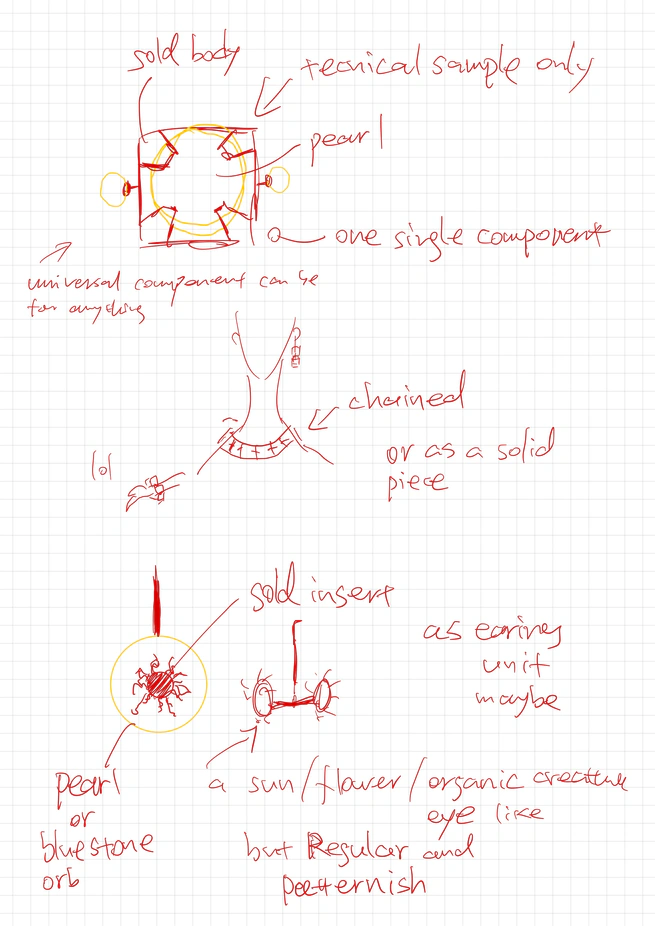 sold body
tecnical sample only
pearl
one single component
universal component can be
for anything
chained
or as a solid
piece
sold insert
as earing
unit
maybe
pearl
or
bluestone
orb
a sun/flower/organic creature
eye like
but Regular and
patternish